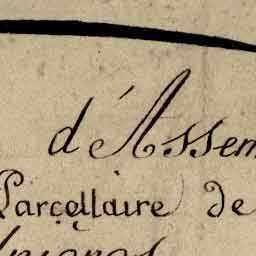 d'Assem
Parcellaire de